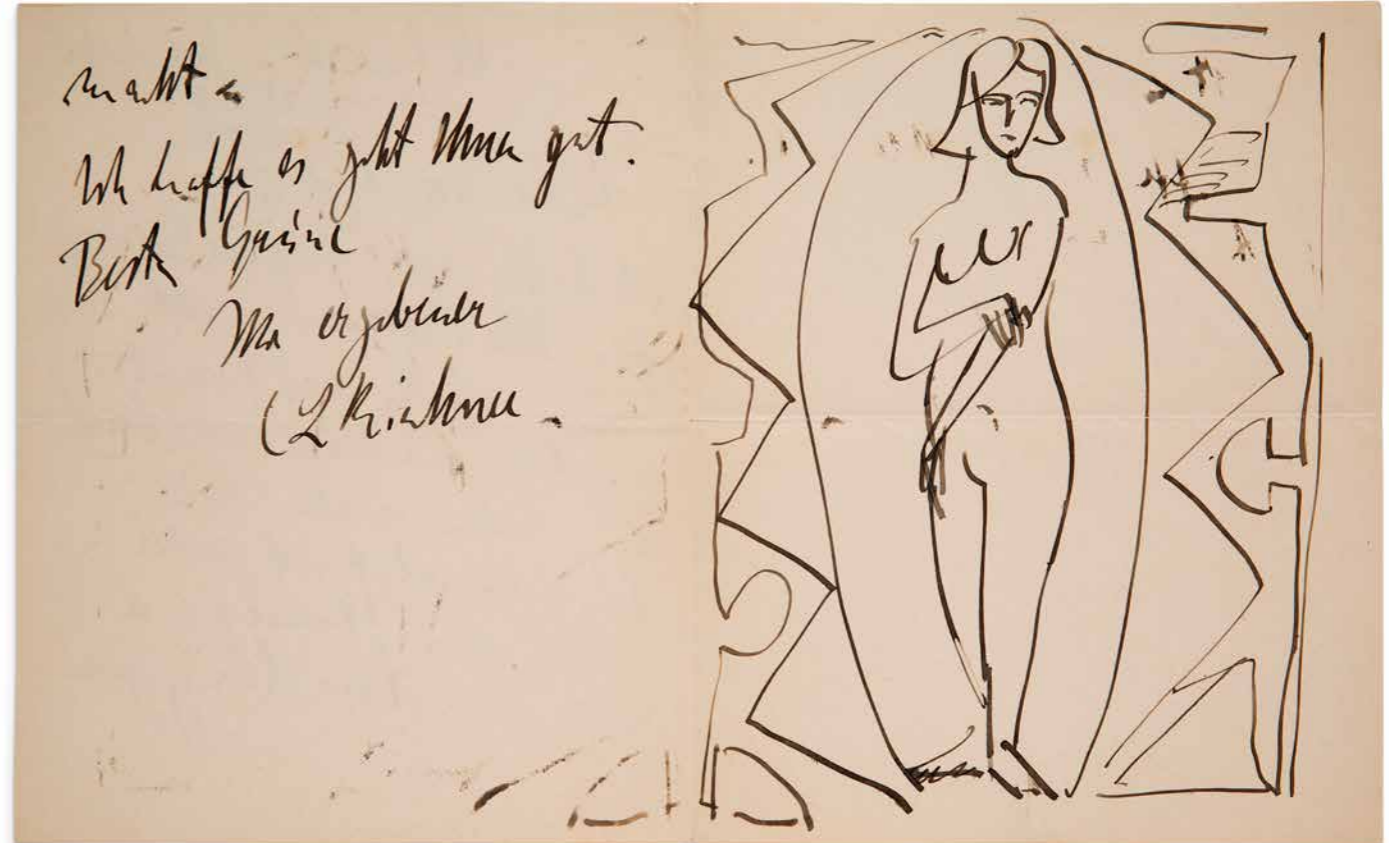 macht.
Ich hoffe es geht Ihnen gut.
Beste Grüsse
Ihr ergebener
E L Kirchner.